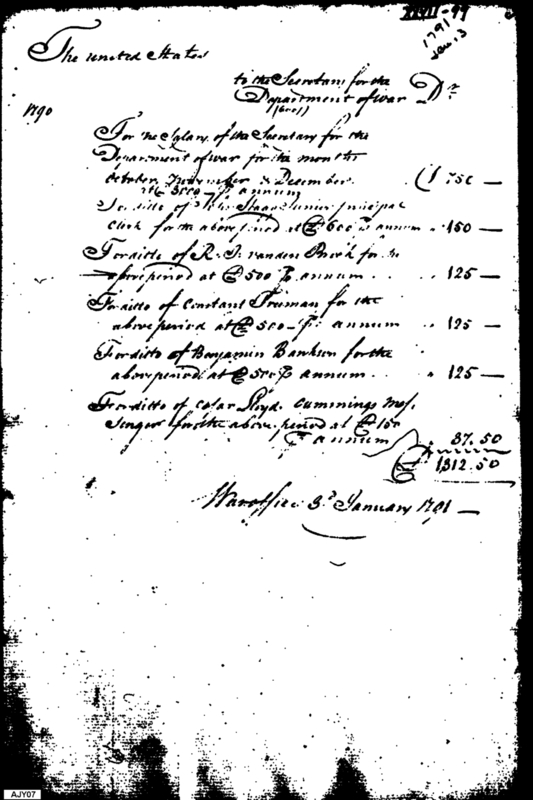 1791
Jan. 13
The united States
to the Secretary for the
Department of war Dr
1790
For the Salary of the Secretary for the
Department of war for the months
October, November & December
at 3000 p annum 750 —
For ditto of John Stagg Junior principal
clerk for the above period at 600 p annum " 150 —
For ditto of R. J. vanden Broek for the
above period at 500 p annum . . " 125 —
For ditto of Constant Freeman for the
above period at 500 — p annum " 125 —
For ditto of Benjamin Bankson for the
above period at 500 p annum . " 125 —
For ditto of Cesar Lloyd Cummings Mes-
senger for the above period at 150
p annum 37.50
1312.50
War office 3d January 1791 —
AJY07